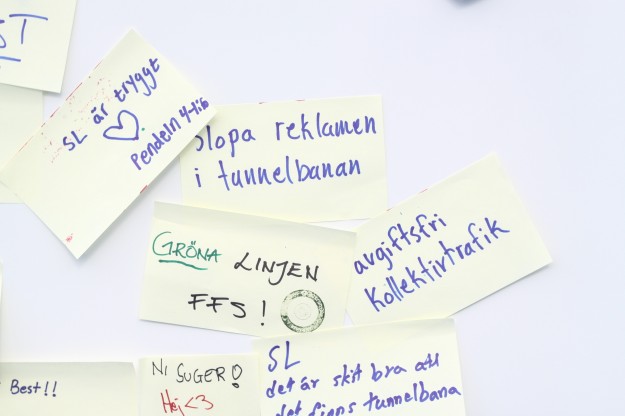 SL är tryggt
Pendeln 4-life
Slopa reklamen
i tunnelbanan
GRÖNA LINJEN
FFS!
avgiftsfri
kollektivtrafik
Best!!
NI SUGER!
Hej <3
SL
det är skit bra att
det finns tunnelbana